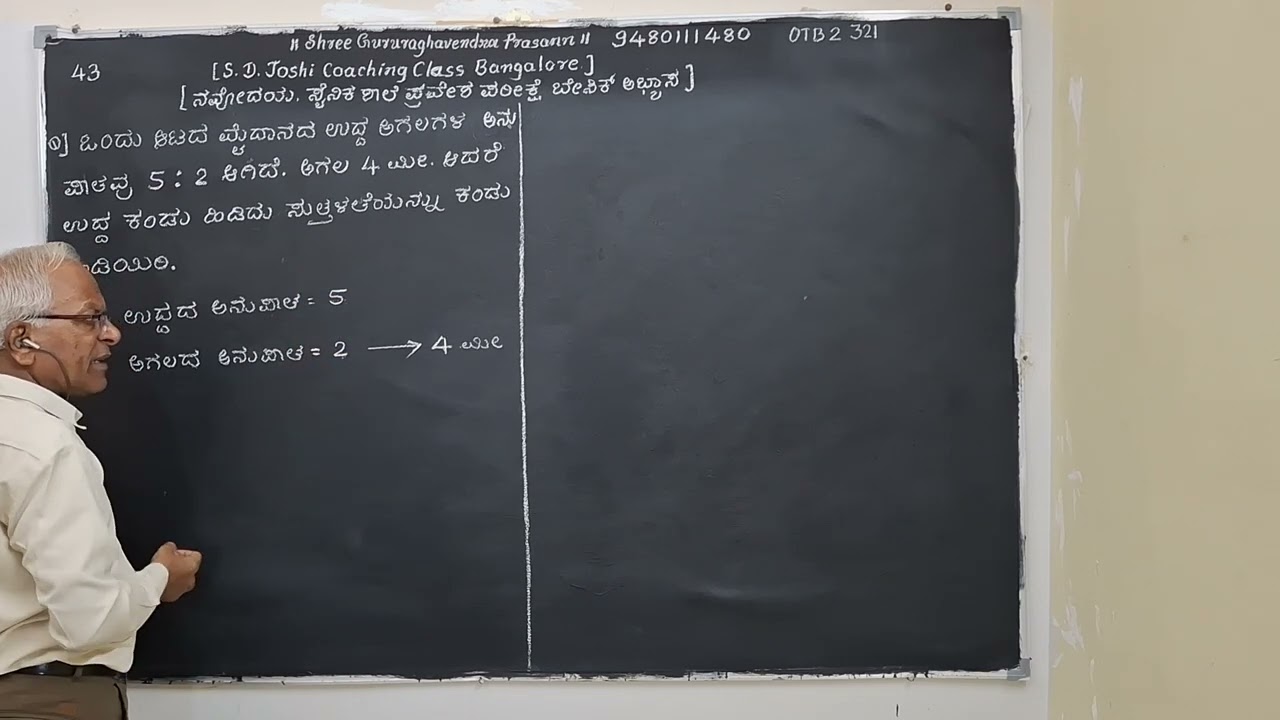 ॥ Shree Gururaghavendra Prasann ॥ 9480111480 OTB2 321
43 [S. D. Joshi Coaching Class Bangalore.]
[ನವೋದಯ. ಸೈನಿಕ ಶಾಲೆ ಪ್ರವೇಶ ಪರೀಕ್ಷೆ ಬೇಸಿಕ್ ಅಭ್ಯಾಸ]
ಒಂದು ಆಟದ ಮೈದಾನದ ಉದ್ದ ಅಗಲಗಳ ಅನು
ಪಾತವು 5 : 2 ಆಗಿದೆ. ಅಗಲ 4 ಮೀ. ಆದರೆ
ಉದ್ದ ಕಂಡು ಹಿಡಿದು ಸುತ್ತಳತೆಯನ್ನು ಕಂಡು
ಡಿಯಿರಿ.
ಉದ್ದದ ಅನುಪಾತ = 5
ಅಗಲದ ಅನುಪಾತ = 2 → 4 ಮೀ